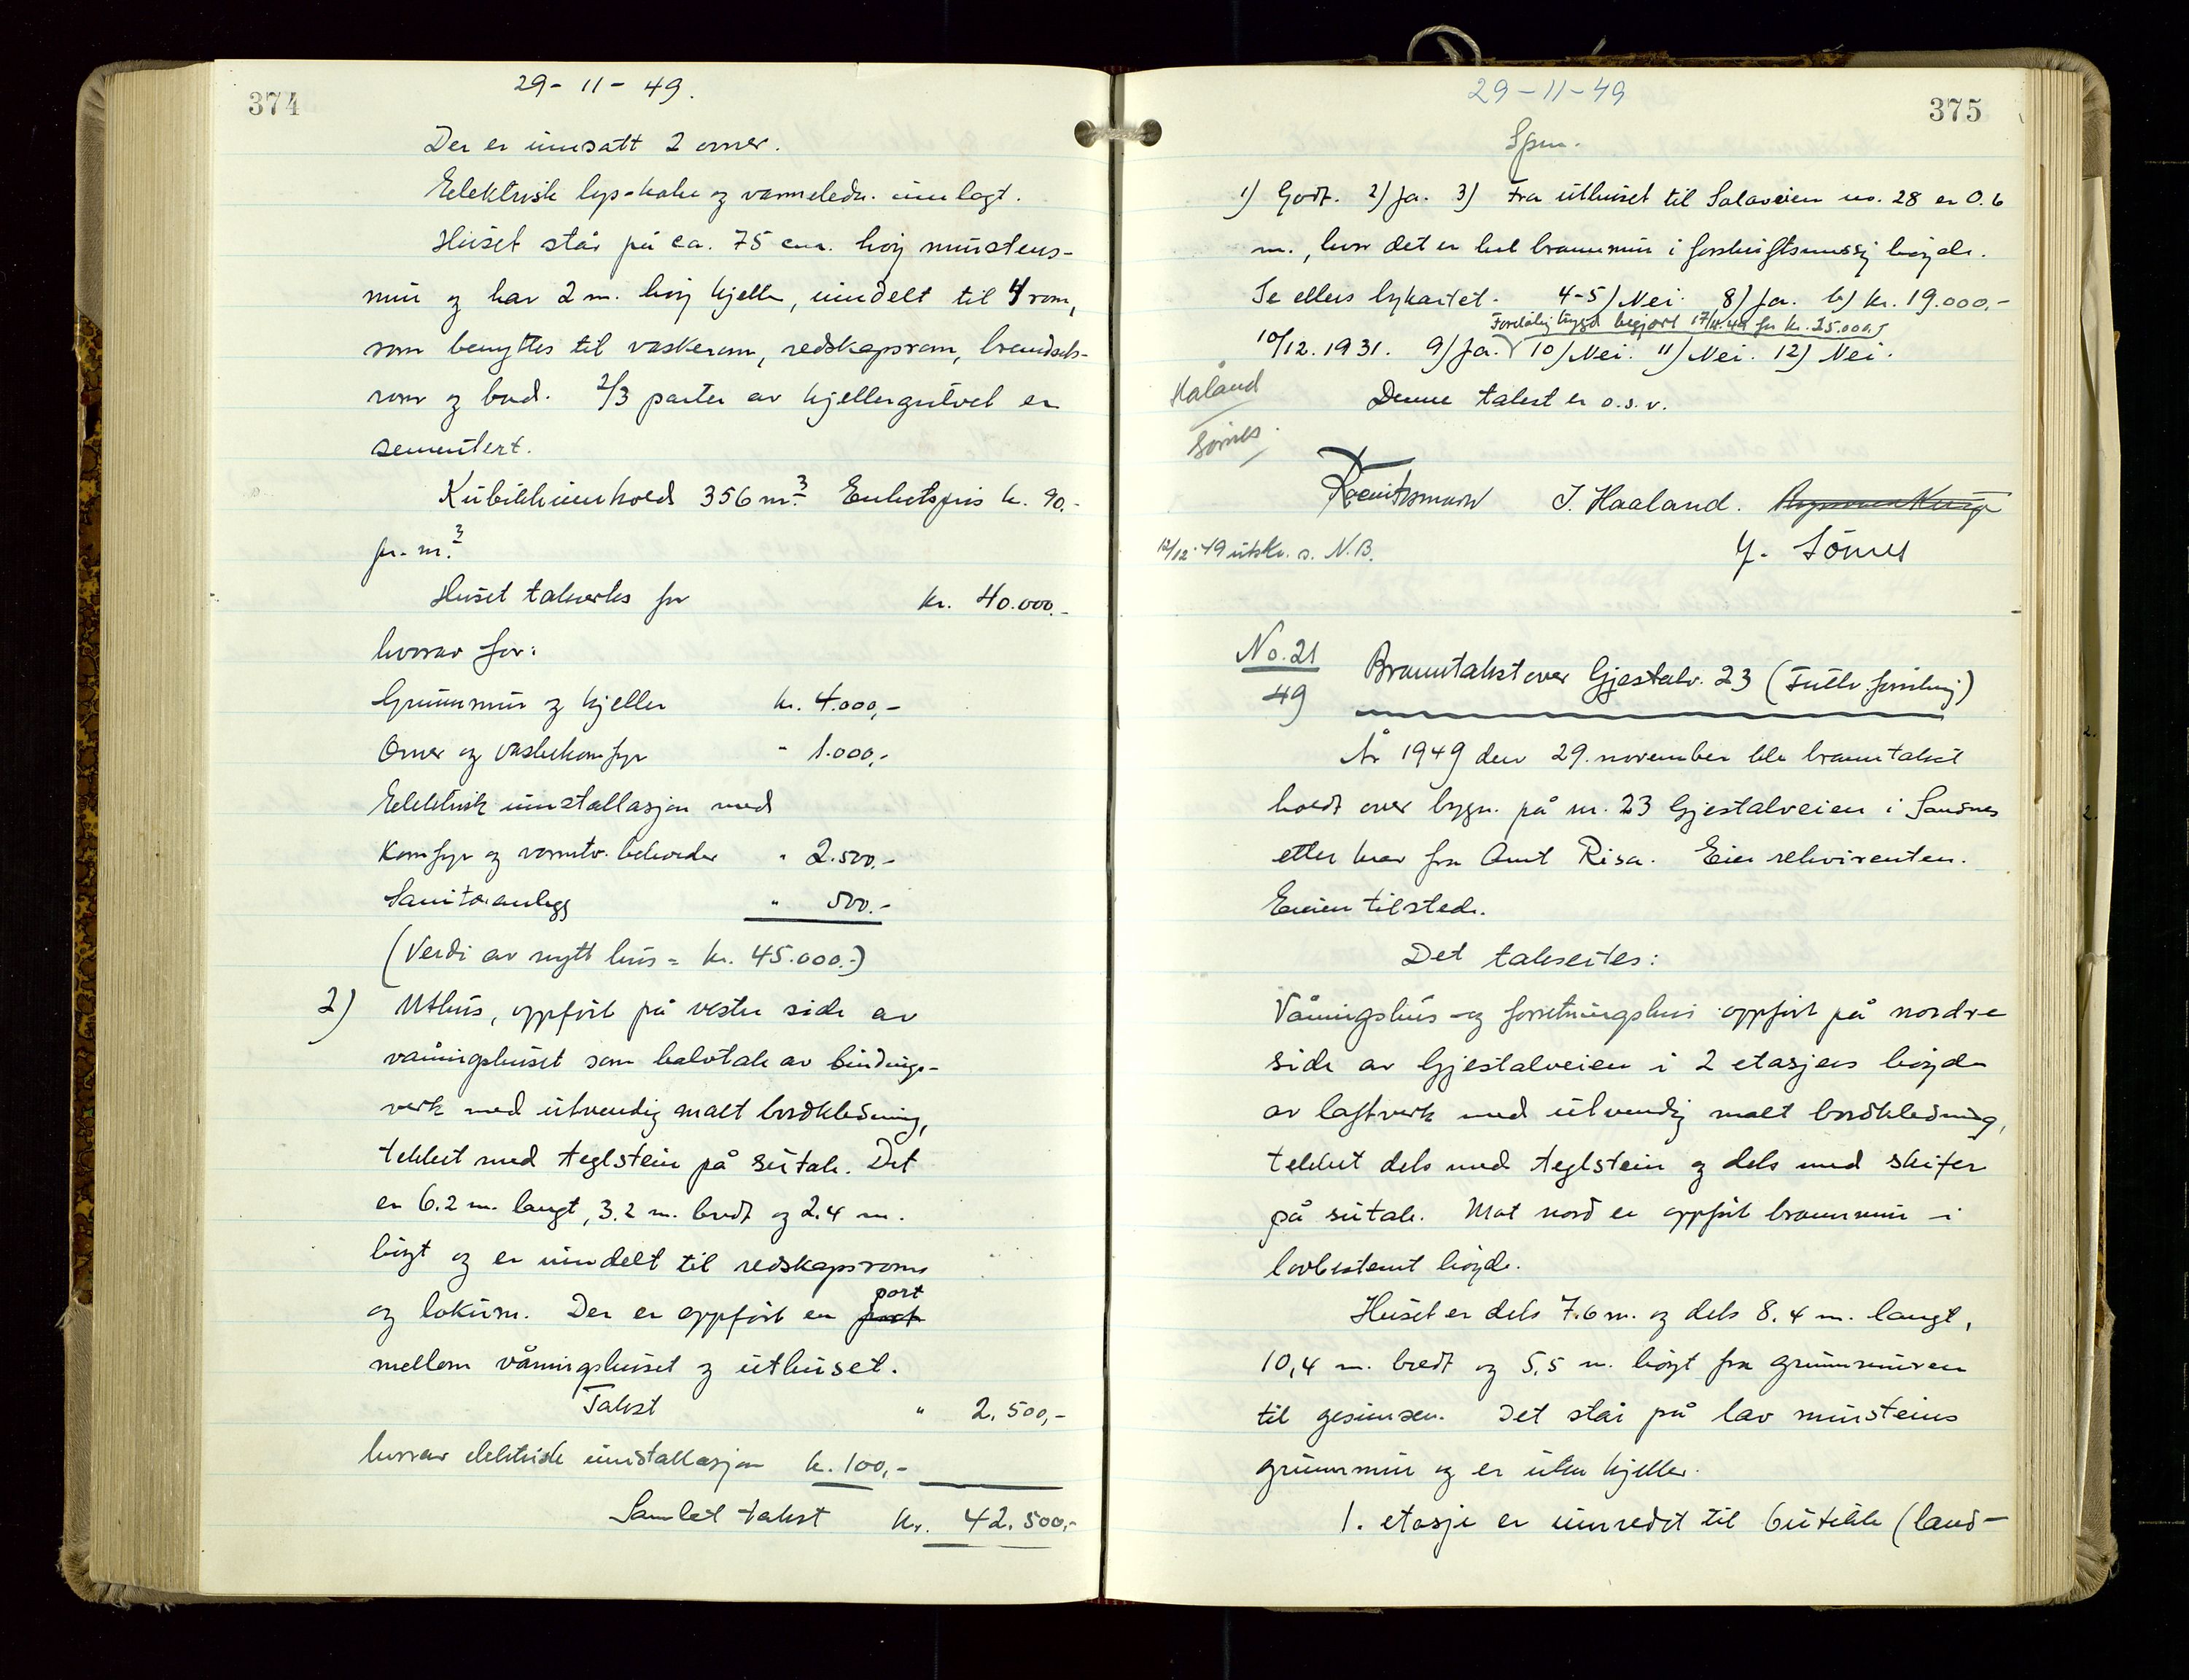 374
29-11-49.
Der er innsatt 2 omner.
Eelektrisk lys-koke og varmeledn. innlagt.
Huset står på ca. 75 cm. høy murstens-
mur og har 2 m. høy kjeller, inndelt til 4 rom,
som benyttes til vaskerom, redskapsrom, brendsels-
rom og bod. 2/3 parter av kjellergulvet er
sementert.
Kubikkinnhold 356 m.3 Enhetspris kr. 90.-
pr. m.3
Huset takserts for kr. 40.000.-
hvorav for:
Grunnmur og kjeller kr. 4.000,-
Omner og vaskekomfyr " 1.000,-
Eelektrisk innstallasjon med
komfyr og varmtv. beholder " 2.500,-
Sanitæranlegg " 500.-
(Verdi av nytt hus = kr. 45.000.-)
2) Uthus, oppført på vestre side av
våningshuset som halvtak av bindings-
verk med utvendig malt bordkledning,
tekket med teglstein på sutak. Det
er 6.2 m. langt, 3.2 m. bredt og 2.4 m.
høgt og er inndelt til redskapsrom
og lokum. Der er oppført en port
mellom våningshuset og uthuset.
Takst " 2.500,-
hvorav elektrisk innstallasjon kr. 100,-
Samlet takst kr. 42.500,-
375
29-11-49
Spm.
1) Godt. 2) Ja. 3) Fra uthuset til Solaveien no. 28 er 0.6
m., hvor det er hel brannmur i forskriftsmessig høyde.
Se ellers bykartet. 4-5) Nei. 8) Ja. b) kr. 19.000,-
Foreløbig trygd begjørt 17/11.49 for kr. 25.000.-
10/12.1931. 9) Ja. 10) Nei. 11) Nei. 12) Nei.
Håland Denne takst er o.s.v.
Sømes.
J. Haaland.
12/12-49 utskr. s. N.B. Sømes
No. 21
49
Branntakst over Gjestalv. 23 (Fullv. forsikring)
År 1949 den 29. november ble branntakst
holdt over bygn. på nr. 23 Gjestalveien i Sandnes
etter krav fra Amt Risa. Eier rekvirenten.
Eieren tilstede.
Det takseres:
Våningshus- og forretningshus oppført på nordre
side av Gjestalveien i 2 etasjers høyde
av laftverk med utvendig malt bordkledning,
tekket dels med teglstein og dels med skifer
på sutak. Mot nord er oppført brannmur i
lovbestemt høyde.
Huset er dels 7.6 m. og dels 8.4 m. langt,
10,4 m. bredt og 5,5 m. høgt fra grunnmuren
til gesimsen. Det står på lav mursteins
grunnmur og er uten kjeller.
1. etasje er innredet til butikk (land-